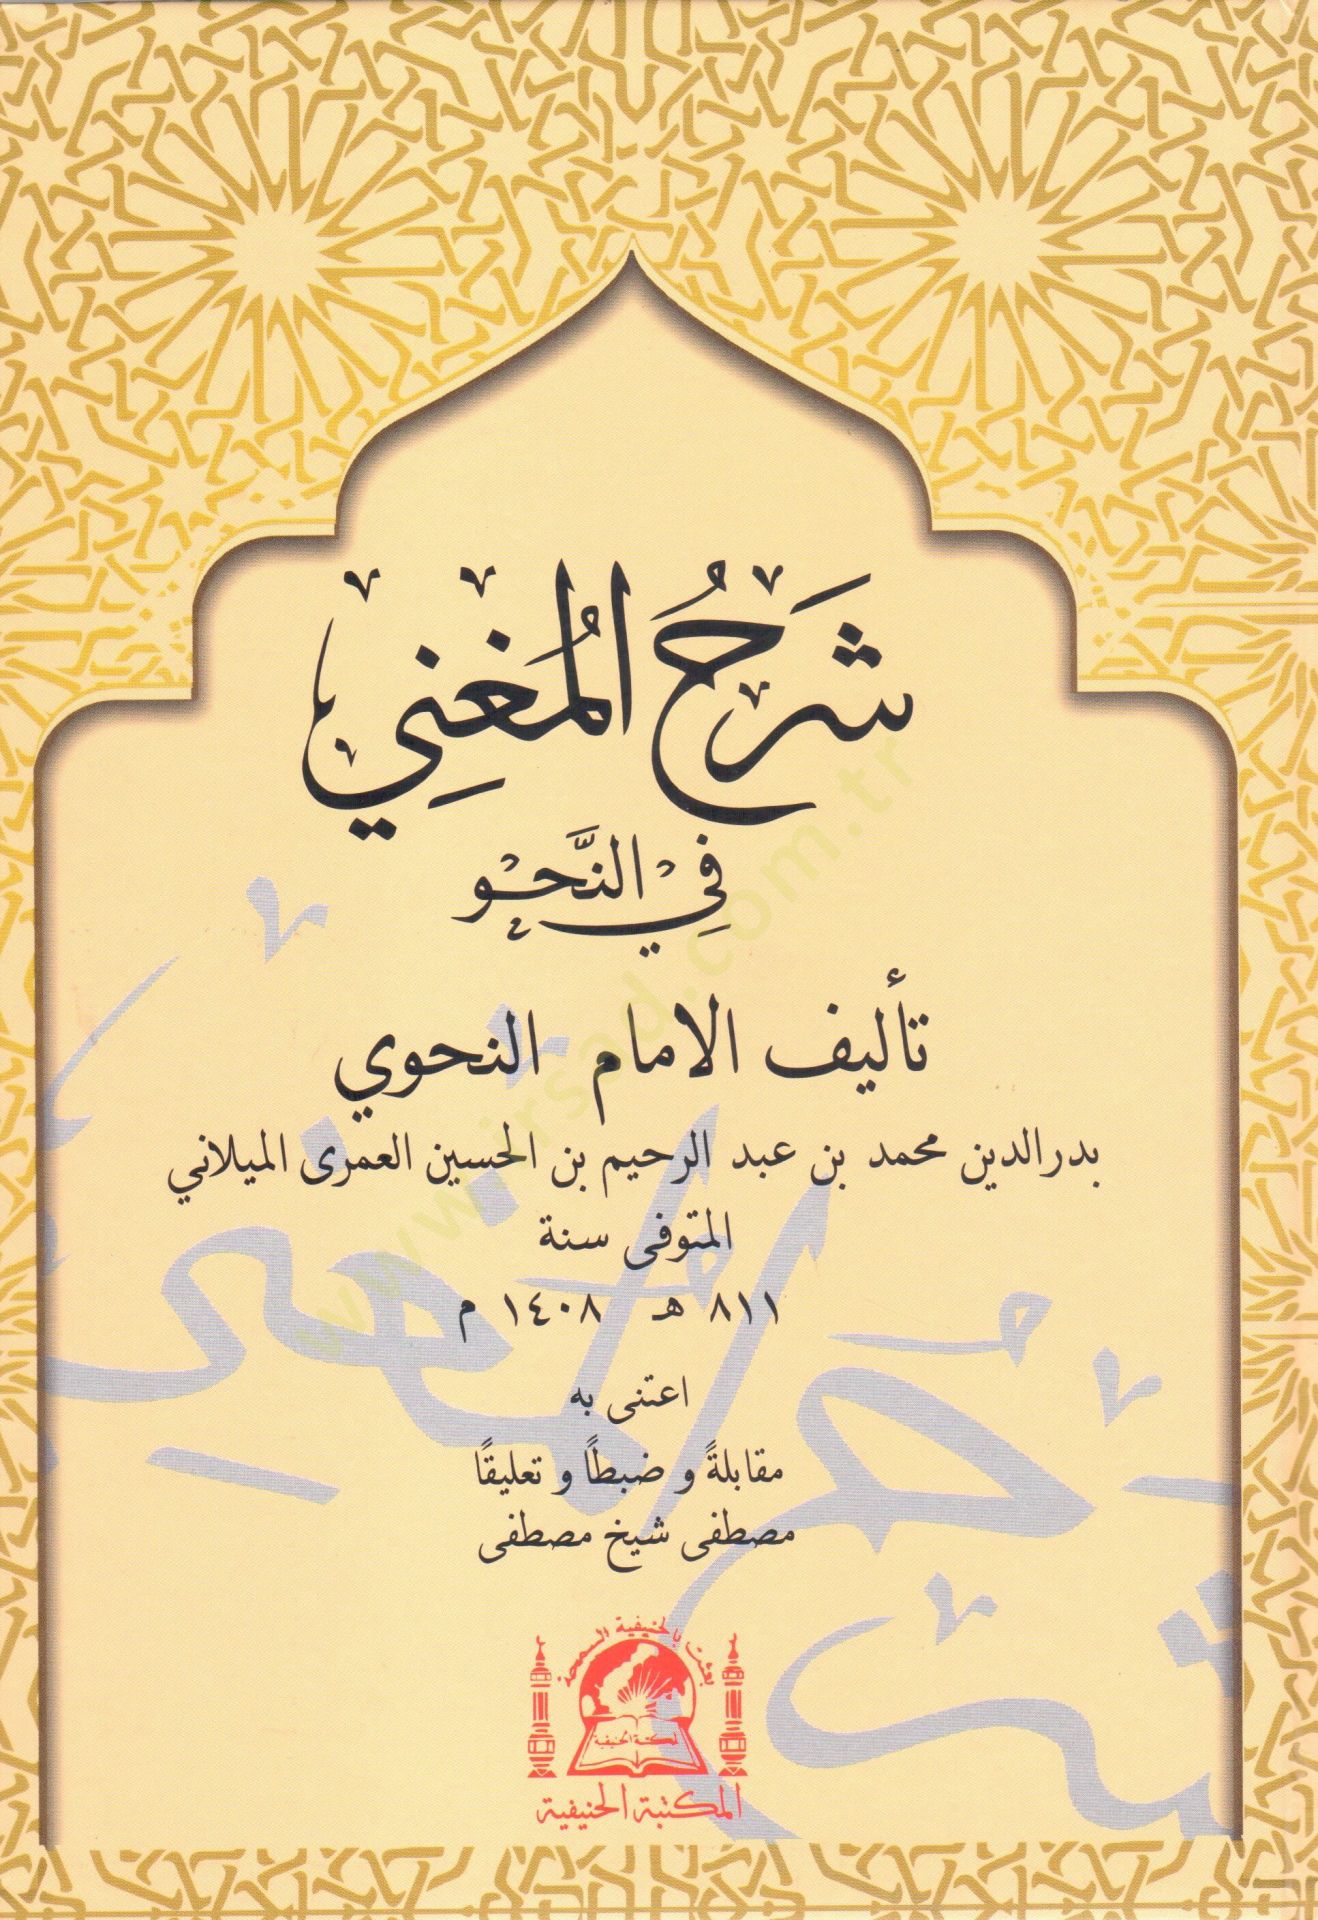 شَرْحُ المُغْنِي
فِي النَّحْوِ
تأليف الامام النحوي
بدرالدين محمد بن عبد الرحيم بن الحسين العمرى الميلاني
المتوفى سنة
٨١١ هـ ١٤٠٨ م
اعتنى به
مقابلةً و ضبطاً و تعليقاً
مصطفى شيخ مصطفى
بعثت بالحنيفية السمحة
المكتبة الحنيفية
المكتبة الحنيفية
www.irsad.com.tr